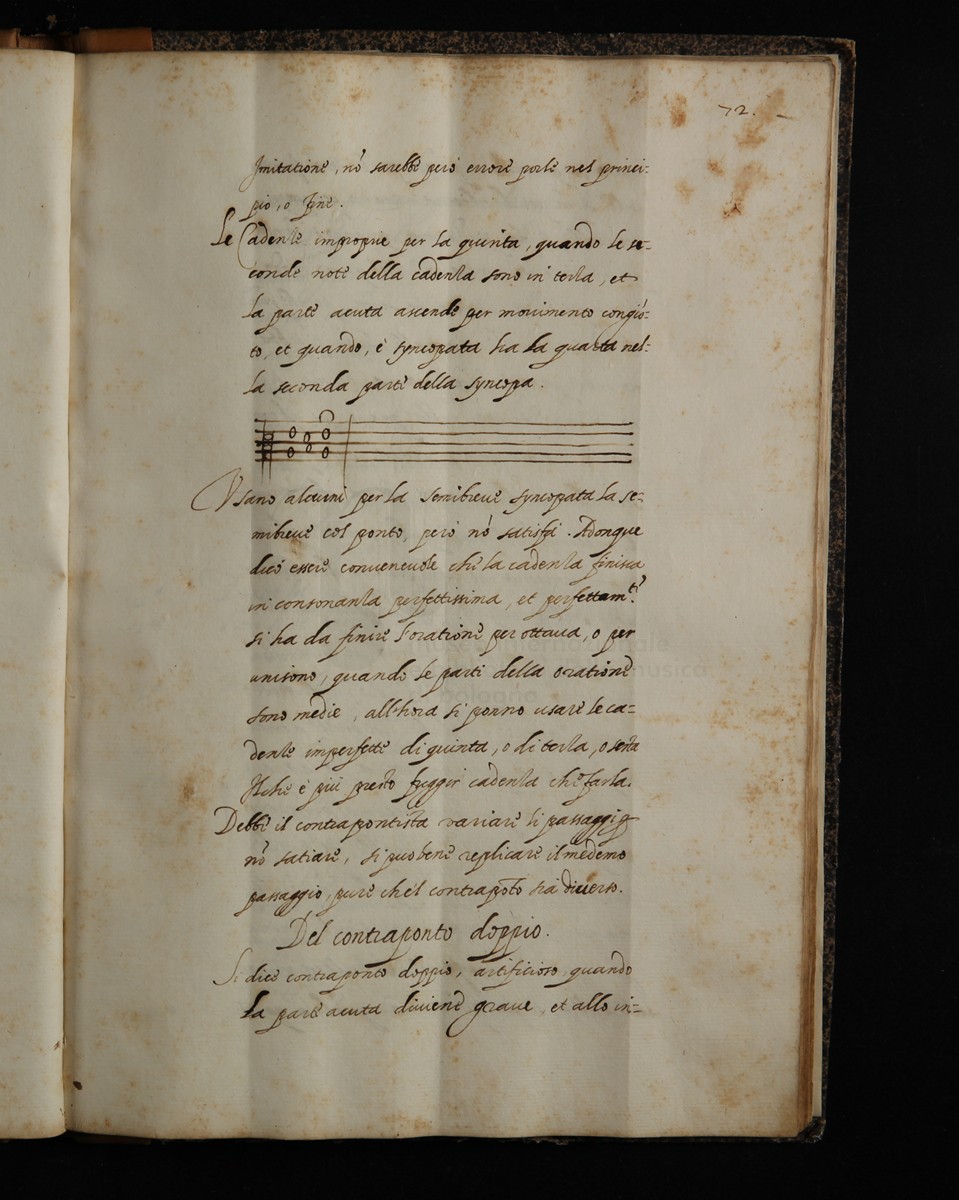 72.
Imitatione, nõ sarebbe però errore porle nel princi:
pio, o fine.
Le Cadenze improprie per la quinta, quando le se-
conde note della cadenza sono in terza, et
la parte acuta ascende per movimento congiõ-
to, et quando, è syncopata ha la quarta nel:
la seconda parte della syncopa.
Usano alcuni per la semibreve syncopata la se-
mibreve col ponto, però nõ satisfà. Adonque
dico essere convenevole che la cadenza finisca
in consonanza perfettissima, et perfettam.te
si ha da finire l'oratione per ottava, o per
unisono, quando le parti della oratione
sono medie, all'hora si ponno usare le ca-
denze imperfette di quinta, o di terza, o sesta
è più presto fuggir cadenza che farla.
Debbe il contrapontista variare li passaggi
nõ satiare, si può bene replicare il medemo
passaggio, pure ch'el contraposto sia diverso.
Del contraponto doppio.
Si dice contraponto doppio, artificioso, quando
la parte acuta diviene grave, et allo in-